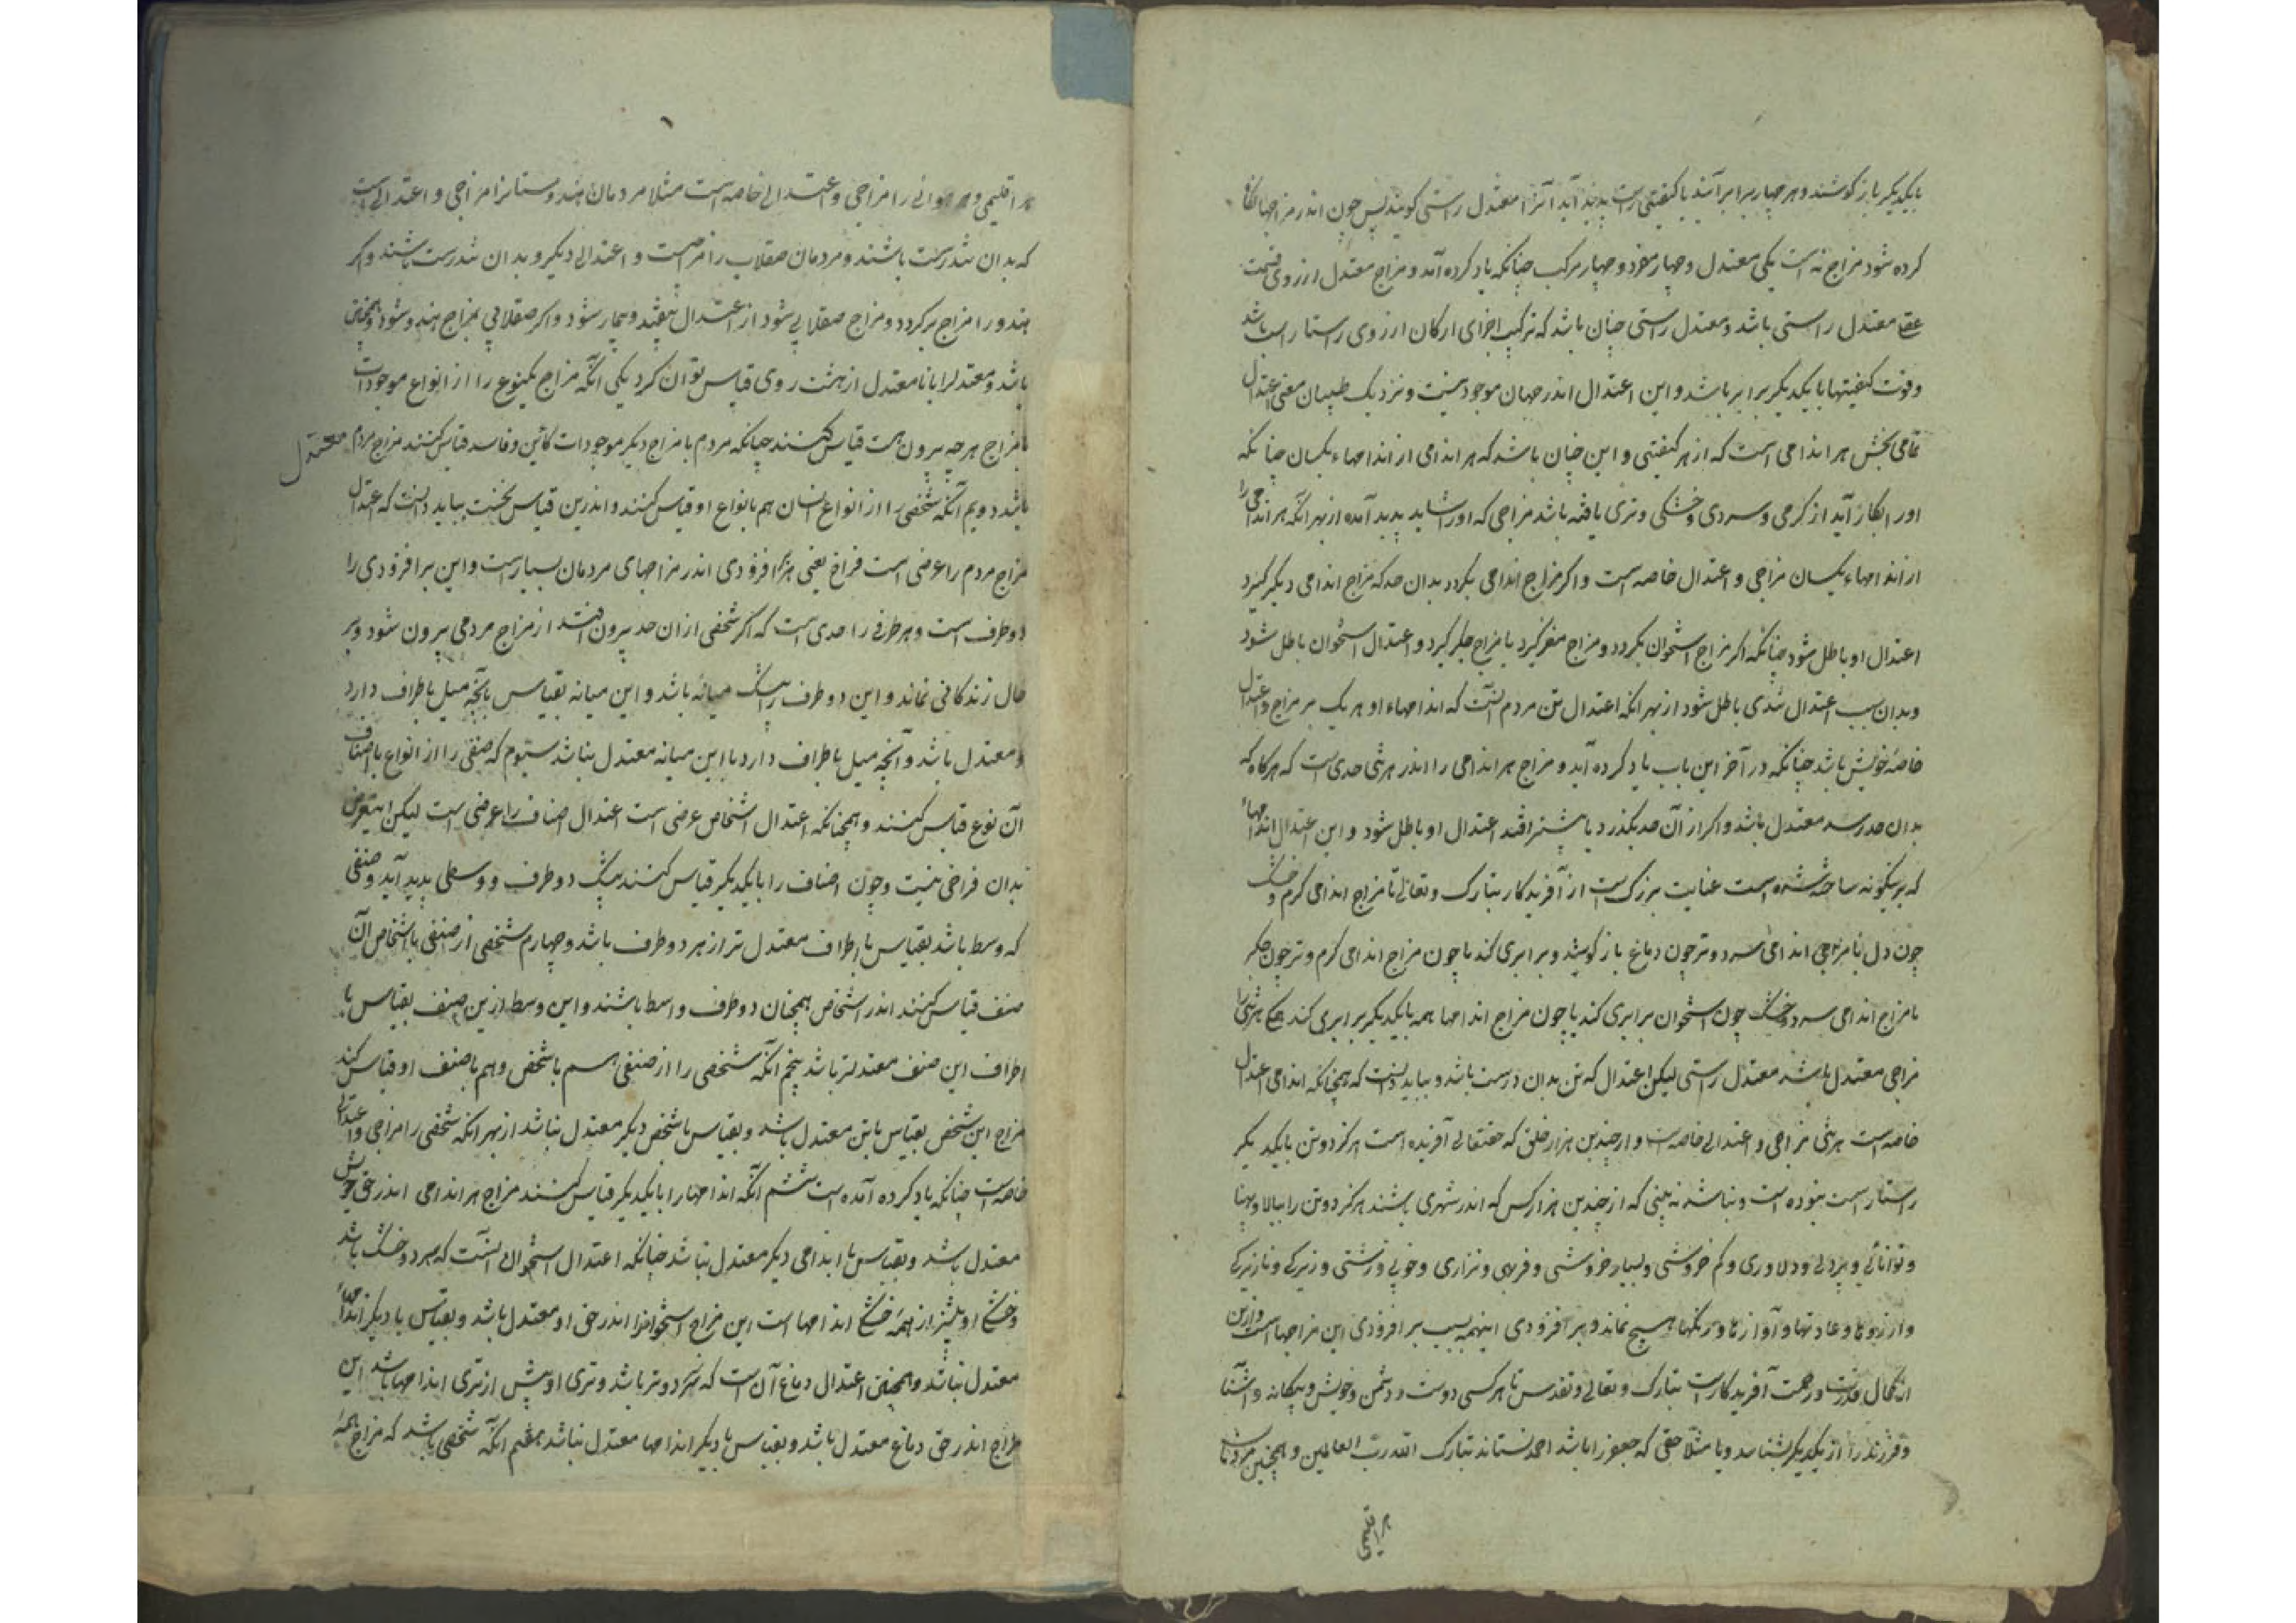 بایکدیگر باز کوشند و هر چهار برابر آیند یا کیفیتی راست پدید آید آنرا معتدل راستی کویند پس چون اندر مزاجها نکاه
کرده شود مزاج نه است یکی معتدل و چهار مفرد و چهار مرکب چنانکه یاد کرده آمد و مزاج معتدل از روی قسمت
عقل معتدل راستی باشد و معتدل راستی چنان باشد که ترکیب اجزای ارکان از روی راستا راست باشد
وقوت کیفیتها با یکدیگر برابر باشد و این اعتدال اندر جهان موجود نیست و نزدیک طبیبان معنی اعتدال
تمامی بخش هر اندامی است که از هر کیفیتی و این چنان باشد که هر اندامی از اندامهاء یکسان چنانکه
اورا بکار آید از کرمی و سردی و خشکی و تری یافته باشد مزاجی که اورا شاید پدید آمده از بهر انکه هر اندامی را
از اندامهاء یکسان مزاجی و اعتدال خاصه است و اکر مزاج اندامی بکردد بدان حد که مزاج اندامی دیکر کیرد
اعتدال او باطل شود چنانکه اکر مزاج استخوان بکردد و مزاج مغز کیرد یا مزاج جکر کیرد و اعتدال استخوان باطل شود
وبدان سبب اعتدال تن باطل شود از بهر انکه اعتدال تن مردم آنست که اندامهاء او هر یک بر مزاج و اعتدال
خاصه خویش باشد چنانکه در آخر این باب یاد کرده آید و مزاج هر اندامی را اندر هر تنی حدی است که هرکاه که
بدان حد رسد معتدل باشد و اکر از آن حد بکذرد یا پیشتر افتد اعتدال او باطل شود و این اعتدال اندامهاء
که برینکونه ساخته شده است عنایت بزرک است از آفریدکار تبارک و تعالی تا مزاج اندامی کرم و خشک
چون دل با مزاج اندامی سرد و تر چون دماغ باز کوشد و برابری کند یا چون مزاج اندامی کرم و تر چون جکر
با مزاج اندامی سرد و خشک چون استخوان برابری کند یا چون مزاج اندامها همه بایکدیگر برابری کند هیچ تنی را
مزاجی معتدل باشد معتدل راستی لیکن اعتدال که تن بدان درست باشد و بباید دانست که همچنانکه اندامی اعتدال
خاصه است هر تنی مزاجی و اعتدالی خاصه است و از چندین هزار خلق که حقتعالی آفریده است هرکز دو تن بایکدیکر
راستا راست نبوده است و نباشد نه بینی که از چندین هزار کس که اندر شهری باشند هرکز دو تن را ببالا و پهنا
و توانائی و بزدلی و دلاوری و کم خروشی و بسیار خروشی و فربهی و نزاری و خوبی و زشتی و زیرکی و نازیرکی
و آرزوها و عادتها و آوازها و رنکها هیچ نماند و برافزودی اینهمه بسبب برافزودی این مزاجها است و این
از کمال قدرت و رحمت آفریدکار است تبارک و تعالی و تقدس تا هر کسی دوست و دشمن و خویش و بیکانه و آشنا
و فرزند را از یکدیکر بشناسد و یا مثلا حقی که جعفر را باشد احمد نستاند تبارک الله رب العالمین و همچنین مردمان
هر اقلیمی
هر اقلیمی و هر هوائی را مزاجی و اعتدالی خاصه است مثلا مردمان هندوستانرا مزاجی و اعتدالی است
که بدان تندرست باشند و مردمان صقلاب را مزاجست و اعتدالی دیکر و بدان تندرست باشند و اکر
هندو را مزاج برکردد و مزاج صقلابی شود از اعتدال بیفتد و بیمار شود و اکر صقلابی بمزاج هندو شود همچنین
باشد و معتدلرا با نامعتدل از هشت روی قیاس توان کرد یکی انکه مزاج یکنوع را از انواع موجودات
با مزاج هرچه بیرون است قیاس کنند چنانکه مردم با مزاج دیکر موجودات کاین و فاسد قیاس کنند مزاج مردم معتدل
باشد دویم آنکه شخصی را از انواع انسان هم بانواع او قیاس کنند و اندرین قیاس نخست بباید دانست که اعتدال
مزاج مردم را عرضی است فراخ یعنی برافزودی اندر مزاجهای مردمان بسیار است و این برافزودی را
دو طرف است و هر طرفی را حدی است که اکر شخصی از ان حد بیرون افتد از مزاج مردمی بیرون شود و بر
حال زندکانی نماند و این دو طرف را یک میانه باشد و این میانه بقیاس بانچه میل باطراف دارد
و معتدل باشد و آنچه میل باطراف دارد با این میانه معتدل نباشد سیوم که صنفی را از انواع باصناف
آن نوع قیاس کنند و همچنانکه اعتدال اشخاص عرضی است اعتدال اصناف را عرضی است لیکن این عرض
بدان فراخی نیست و چون اصناف را بایکدیکر قیاس کنند بیشک دو طرف و وسطی پدید آید و صنفی
که وسط باشد بقیاس با اطراف معتدل تر از هر دو طرف باشد و چهارم شخصی از صنفی با اشخاص آن
صنف قیاس کنند اندر اشخاص همچنان دو طرف و اسط باشند و این وسط ازین صنف بقیاس با
اطراف این صنف معتدلتر باشد پنجم انکه شخصی را از صنفی هم با شخص و هم با صنف او قیاس کند
مزاج این شخص بقیاس با تن معتدل باشد و بقیاس با شخص دیکر معتدل نباشد از بهر انکه شخصی را مزاجی و اعتدالی
خاصه است چنانکه یاد کرده آمده است ششم انکه اندامها را بایکدیکر قیاس کنند مزاج هر اندامی اندر حق خویش
معتدل باشد و بقیاس با اندامی دیکر معتدل نباشد چنانکه اعتدال استخوان آنست که سرد و خشک باشد
و خشکی او بیشتر از همه خشکی اندامها است این مزاج استخوانرا اندر حق او معتدل باشد و بقیاس با دیکر اندامهاء
معتدل نباشد و همچنین اعتدال دماغ آن است که سرد و تر باشد و تری او بیش از تری اندامها باشد این
مزاج اندر حق دماغ معتدل باشد و بقیاس با دیکر اندامها معتدل نباشد هفتم انکه شخصی باشد که مزاج همه